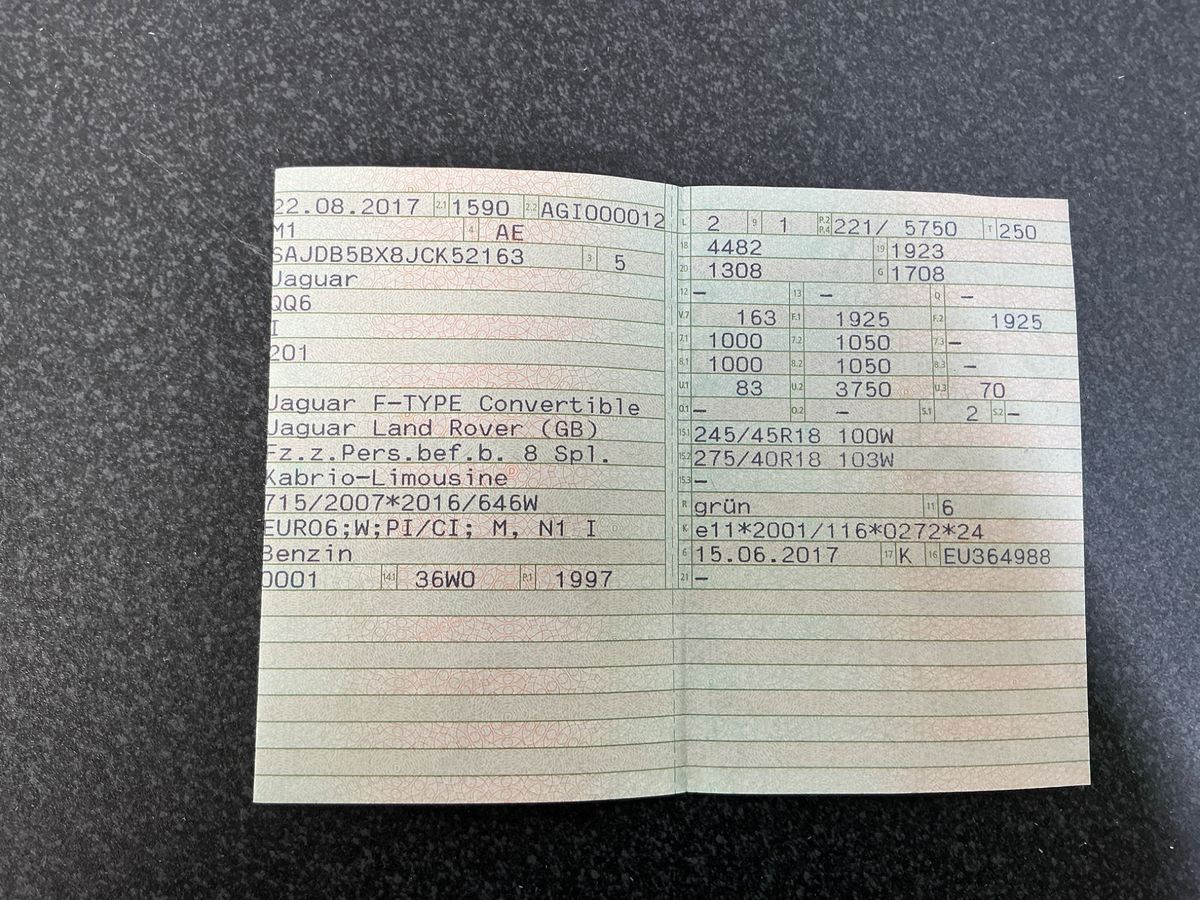 22.08.2017 2.1 1590 2.2 AGI000012
M1 4 AE
SAJDB5BX8JCK52163 3 5
Jaguar
QQ6
I
201
Jaguar F-TYPE Convertible
Jaguar Land Rover (GB)
Fz.z.Pers.bef.b. 8 Spl.
Kabrio-Limousine
715/2007*2016/646W
EURO6;W;PI/CI; M, N1 I
Benzin
0001 14.1 36W0 P.1 1997
L 2 9 1 P.2 P.4 221/ 5750 T 250
18 4482 19 1923
20 1308 G 1708
12 – 13 – Q –
V.7 163 F.1 1925 F.2 1925
7.1 1000 7.2 1050 7.3 –
8.1 1000 8.2 1050 8.3 –
U.1 83 U.2 3750 U.3 70
O.1 – O.2 – S.1 2 S.2 –
15.1 245/45R18 100W
15.2 275/40R18 103W
15.3 –
R grün 11 6
K e11*2001/116*0272*24
6 15.06.2017 17 K 16 EU364988
21 –